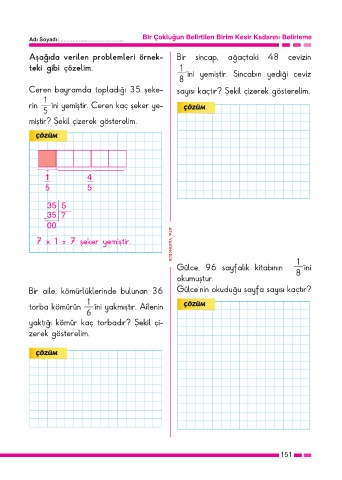 Adı Soyadı: ..............................
Bir Çokluğun Belirtilen Birim Kesir Kadarını Belirleme
Aşağıda verilen problemleri örnek-
teki gibi çözelim.
Ceren bayramda topladığı 35 şeke-
rin 1/5 'ini yemiştir. Ceren kaç şeker ye-
miştir? Şekil çizerek gösterelim.
ÇÖZÜM
1/5 4/5
35 5
35 7
00
7 x 1 = 7 şeker yemiştir.
Bir aile, kömürlüklerinde bulunan 36
torba kömürün 1/6 'ini yakmıştır. Ailenin
yaktığı kömür kaç torbadır? Şekil çi-
zerek gösterelim.
ÇÖZÜM
ATA YAYINCILIK
Bir sincap, ağaçtaki 48 cevizin
1/8 'ini yemiştir. Sincabın yediği ceviz
sayısı kaçtır? Şekil çizerek gösterelim.
ÇÖZÜM
Gülce, 96 sayfalık kitabının 1/8 'ini
okumuştur.
Gülce'nin okuduğu sayfa sayısı kaçtır?
ÇÖZÜM
151